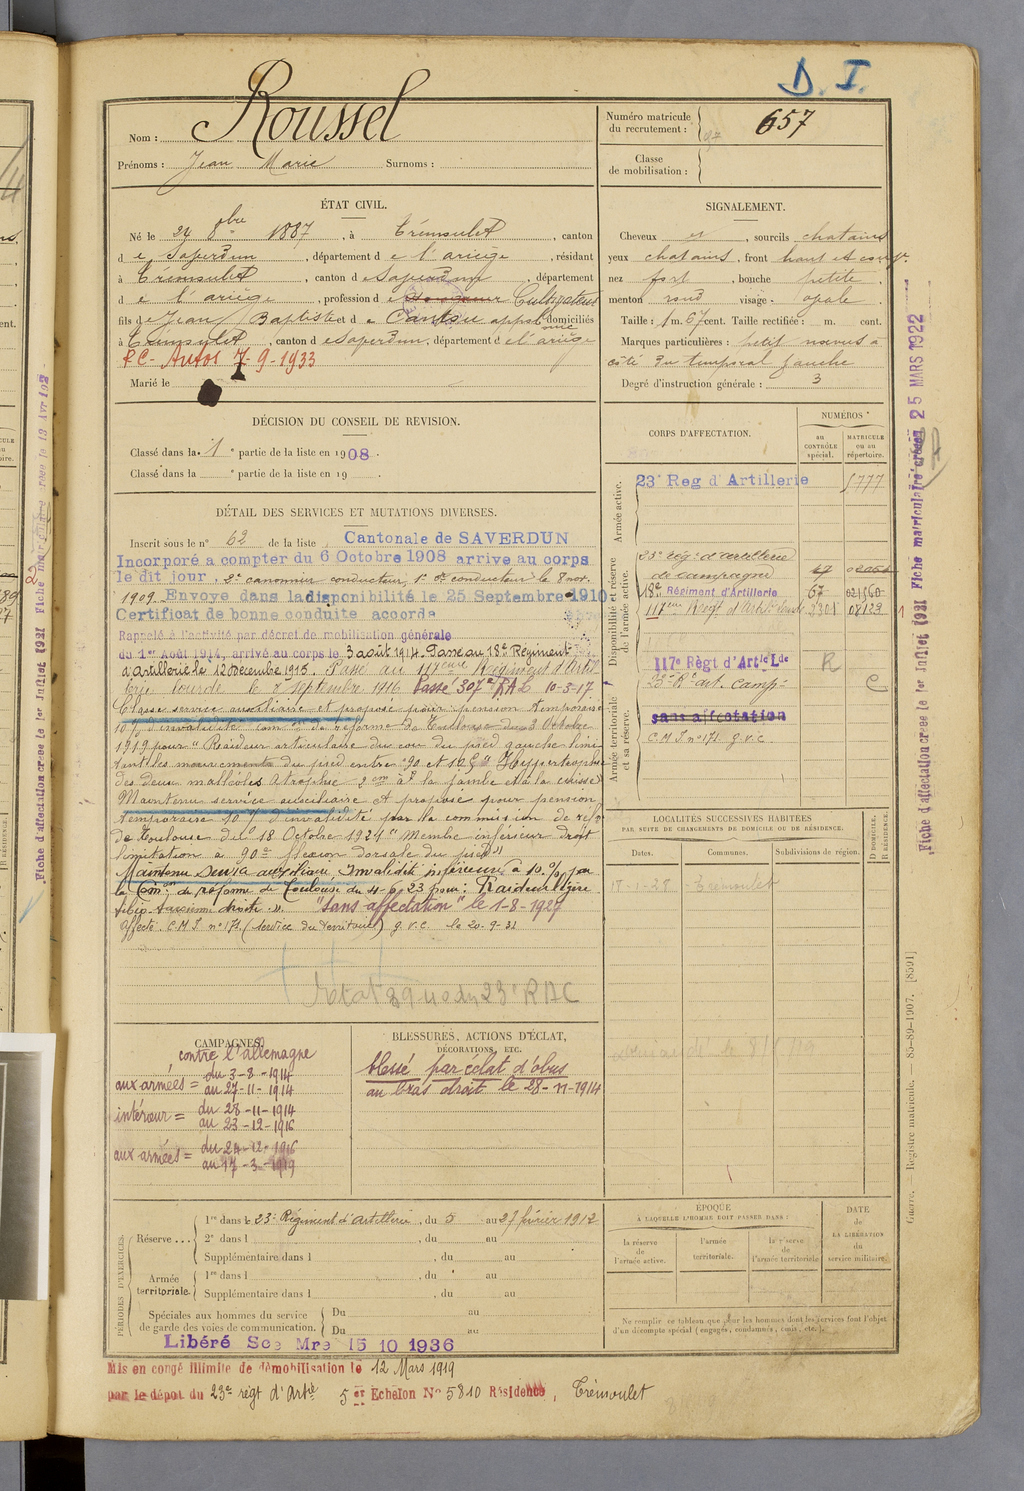 D. I.
Nom : Roussel
Prénoms : Jean Marie Surnoms :
Numéro matricule
du recrutement : 657
Classe
de mobilisation :
ÉTAT CIVIL.
Né le 24 8bre 1887, à Trémoulet, canton
de Saverdun, département de l'ariège, résidant
à Trémoulet, canton de Saverdun, département
de l'ariège, profession de Cultivateur
fils de Jean Baptiste et de domiciliés
à Trémoulet, canton de Saverdun, département de l'ariège
RC- Autos 7-9-1933
Marié le
SIGNALEMENT.
Cheveux et, sourcils chatains
yeux chatains, front haut et
nez fort, bouche petite
menton rond visage ovale
Taille : 1 m. 67 cent. Taille rectifiée : m. cent.
Marques particulières : petit naevus à
côté du temporal gauche
Degré d'instruction générale : 3
DÉCISION DU CONSEIL DE REVISION.
Classé dans la 1e partie de la liste en 1908.
Classé dans la e partie de la liste en 19
CORPS D'AFFECTATION.
NUMÉROS
au
CONTRÔLE
spécial.
MATRICULE
ou au
répertoire.
Armée active.
23e Reg d'Artillerie 777
Disponibilité et réserve
de l'armée active.
23e rég. d'artillerie
de campagne
18e Régiment d'Artillerie 67 021560
117eme Régt d'Artie lourde 2301 08123
Armée territoriale
et sa réserve.
117e Règt d'Artie Lde R
23e Rt art. camp. C
sans affectation
C.M.I n°171. g.v.c
DÉTAIL DES SERVICES ET MUTATIONS DIVERSES.
Inscrit sous le n° 62 de la liste Cantonale de SAVERDUN
Incorporé a compter du 6 Octobre 1908 arrive au corps
le dit jour, 2e canonnier conducteur, 1er cr conducteur le 8 nov.
1909 Envoye dans la disponibilité le 25 Septembre 1910
Certificat de bonne conduite accorde
Rappelé à l'activité par décret de mobilisation générale
du 1er Août 1914, arrivé au corps le 3 août 1914. Passé au 18e Régiment
d'artillerie le 12 Décembre 1915. Passé au 117eme Régiment d'Artil
lerie lourde le 7 Septembre 1916 Passé 307e RAL 10-3-17
Classé service auxiliaire et proposé pour pension temporaire
10% d'invalidité com. de réforme de Toulouse du 3 Octobre
1919 pour "Raideur articulaire du cou du pied gauche limi
tant les mouvements du pied entre 90 et Hypertrophie
des deux malléoles atrophie 2 cm à la jambe et à la cuisse
Maintenu service auxiliaire et proposé pour pension
temporaire 10% d'invalidité par la commission de réf.
de Toulouse du 18 Octobre 1921 "Membre inférieur droit
limitation à 90° flexion dorsale du pied"
Maintenu Service auxiliaire, Invalidité inférieure à 10% par
la Com. de réforme de Toulouse du 4-6-23 pour : Raideur légère
tibio-tarsienne droite". "Sans affectation" le 1-8-1929
Affecté C.M.I n°171. (service du Territoire) g.v.c. le 20-9-31
23e RAC
LOCALITÉS SUCCESSIVES HABITÉES
PAR SUITE DE CHANGEMENTS DE DOMICILE OU DE RÉSIDENCE.
Dates. Communes. Subdivisions de région. D DOMICILE. R RÉSIDENCE.
1-28 Trémoulet
CAMPAGNES
contre l'allemagne
aux armées = du 3-8-1914
au 27-11-1914
intérieur = du 28-11-1914
au 23-12-1916
aux armées = du 24-12-1916
au 17-3-1919
BLESSURES, ACTIONS D'ÉCLAT,
DÉCORATIONS, ETC.
blessé par éclat d'obus
au bras droit le 28-11-1914
PÉRIODES D'EXERCICES.
Réserve...
1re dans le 23e Régiment d'artillerie, du 5 au 27 février 1912
2e dans l , du au
Supplémentaire dans l , du au
Armée
territoriale.
1re dans l , du au
Supplémentaire dans l , du au
Spéciales aux hommes du service
de garde des voies de communication.
Du au
Du au
Libéré Sce Mre 15 10 1936
ÉPOQUE
A LAQUELLE L'HOMME DOIT PASSER DANS :
la réserve
de
l'armée active.
l'armée
territoriale.
la réserve
de
l'armée territoriale
DATE
de
LA LIBÉRATION
du
service militaire.
Ne remplir ce tableau que pour les hommes dont les services font l'objet
d'un décompte spécial (engagés, condamnés, omis, etc.).
Mis en congé illimité de démobilisation le 12 Mars 1919
par le dépôt du 23e régt d'Artie 5er Echelon N° 5810 Résidence, Trémoulet
Fiche d'affectation créée le 1er Juillet 1931 Fiche matriculaire créée 25 MARS 1922
Guerre. — Registre matricule. — 85-89-1907. [8591]